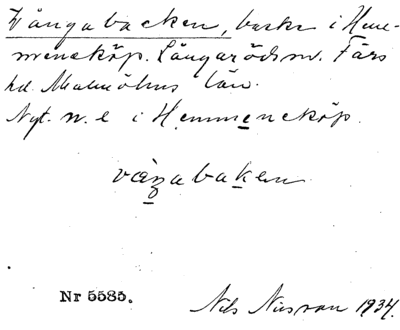 Vångabacken, backe i Hem-
menesköp. Långaröds sn. Färs
hd. Malmöhus län.
Nyt. n. e i Hemmeneköp.
væŋabaken
Nr 5585.
Nils Nilsson 1934.